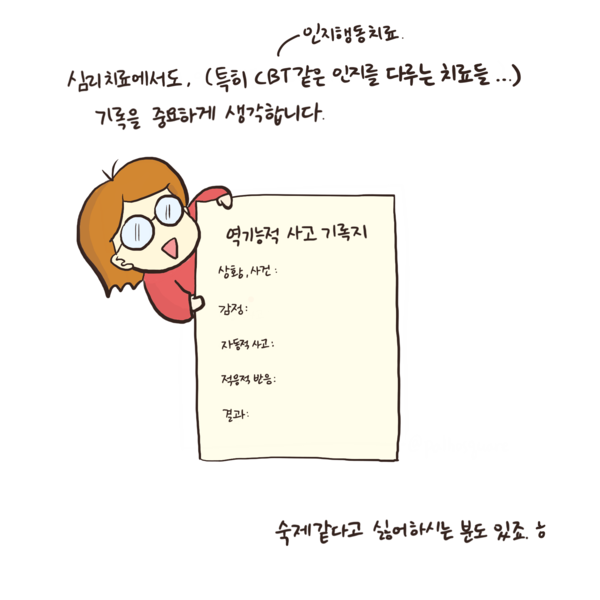 인지행동치료.
심리치료에서도, (특히 CBT같은 인지를 다루는 치료들...)
기록을 중요하게 생각합니다.
역기능적 사고 기록지
상황, 사건:
감정:
자동적 사고:
적응적 반응:
결과:
숙제같다고 싫어하시는 분도 있죠. ㅎ